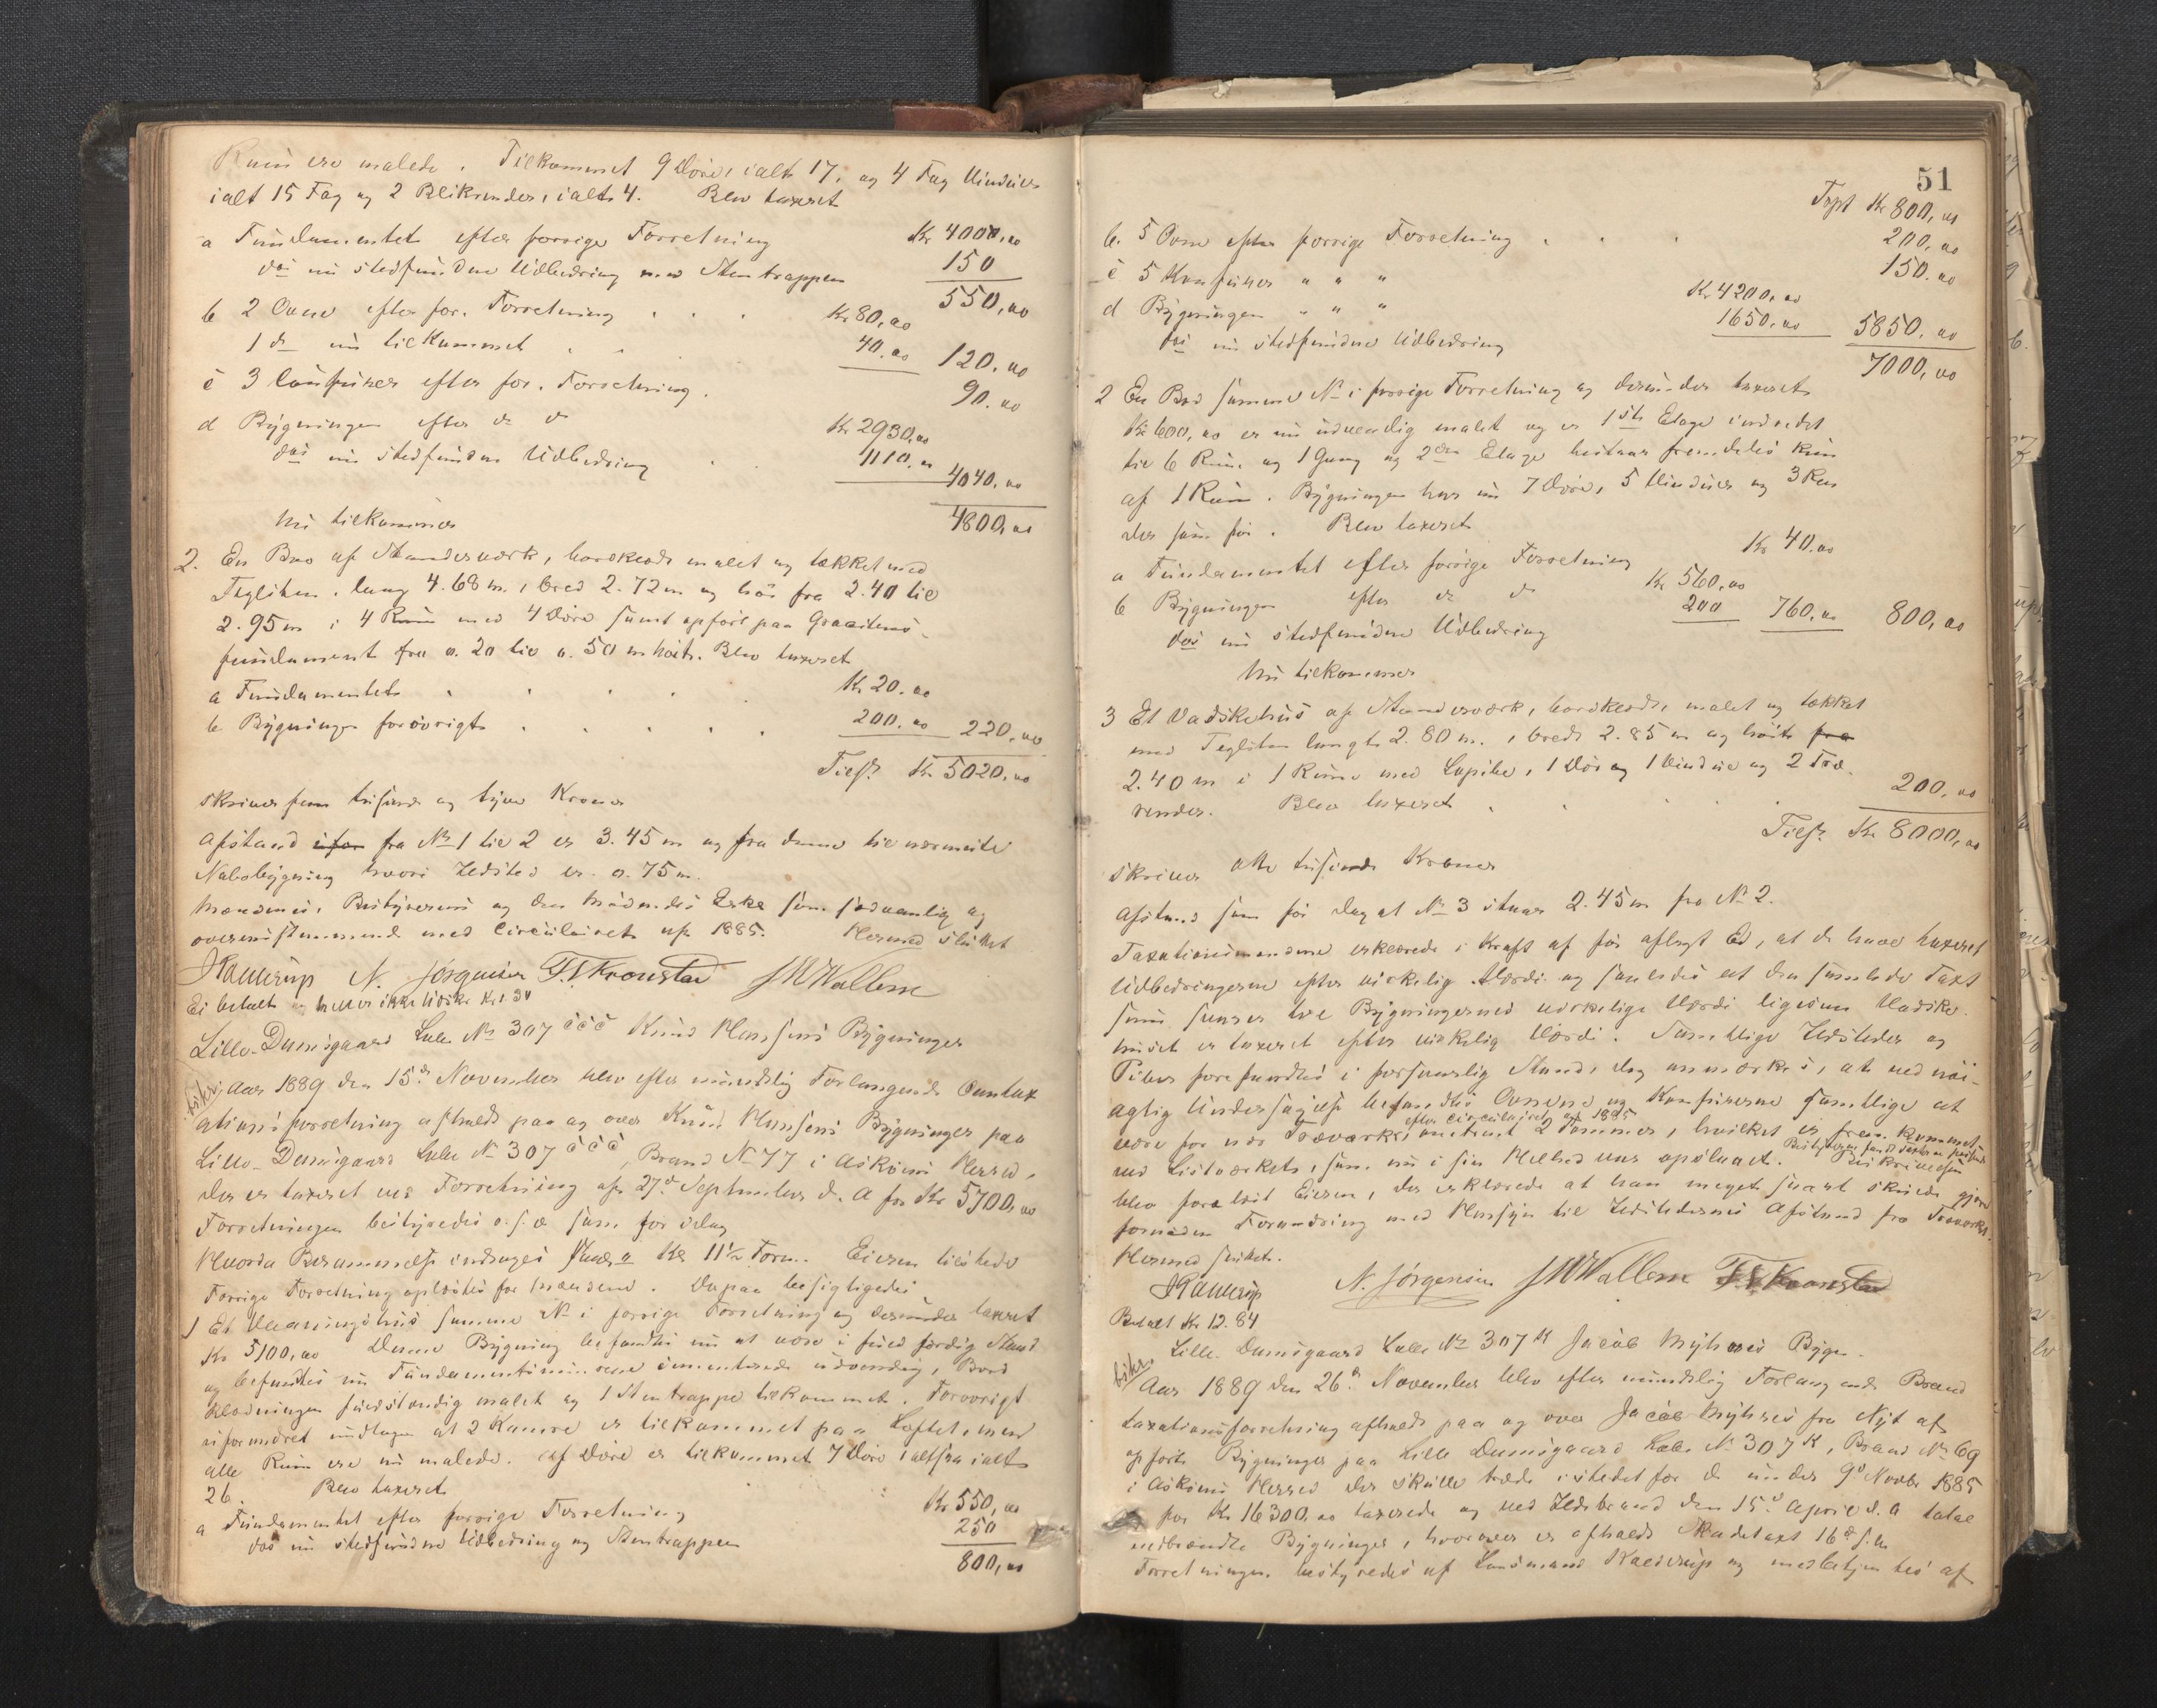 Rum ere malede. Tilkommet 9 Döre, ialt 17, og 4 Fag Vinduer
ialt 15 Fag og 2 Blikrender, ialt 4. Blev taxeret
a Fundamentet efter forrige Forretning Kr 400,00
for nu stedfunden Udbedring med Stentrappen 150
550,00
b 2 Ovne efter for. Forretning Kr 80,00
1 do nu tilkommet 40,00 120,00
c 3 Comfurer efter for. Forretning. 90,00
d Bygningen efter do do Kr 2930,00
for nu stedfunden Udbedring 1110,00 4040,00
4800,00
Nu tilkommer
2. En Bod af Standerværk, bordklædt malet og tækket med
Teglsten, lang 4.68 m., bred 2.72 m og höi fra 2.40 til
2.95 m, i 4 Rum med 4 Döre samt opfört paa Graastens-
fundament fra 0.20 til 0.50 m höit. Blev taxeret
a Fundamentet Kr 20,00
b Bygningen forövrigt 200,00 220,00
Tilsr. Kr 5020,00
skriver fem tusinde og tyve Kroner
Afstand fra No 1 til 2 er 3.45 m og fra denne til nærmeste
Nabobygning hvori Ildsted er 0.75 m.
Mændenes, Bestyrerens og den mödendes som sædvanlig og
overensstemmende med Circulairet af 1885. Hermed sluttet
N. Jörgensen T. Kronstad JMWallem
Ei betalt
Lille-Damsgaard Löbe No 307 Knud Hansens Bygninger
Aar 1889 den 15de November blev efter mundtlig Forlangende Omtax
ationsforretning afholdt paa og over Knud Hansens Bygninger paa
Lille-Damsgaard Löbe No 307, Brand No 77 i Asköens Herred,
der er taxeret ved Forretning af 27de September d. A for Kr 5700,00
Forretningen bestyredes o.s.v. som for idag
Hvorda Berammelse indtages Kl 11½ Form. Eieren tilstede
Forrige Forretning oplæstes for Mændene. Derpaa besigtigedes
1 Et Vaaningshus samme No i forrige Forretning og derunder taxeret
Kr 5100,00 Denne Bygning befandtes nu at være i fuld færdig Stand
og befandtes nu Fundamentsmurene cementerede udvendig, Bord
klædningen fuldstændig malet og 1 Stentrappe tilkommet. Forövrigt
uforandret undtagen at 2 Kamre er tilkommet paa Loftet, men
alle Rum ere nu malede. Af Döre er tilkommet 7 Döre altsaa ialt
26. Blev taxeret
a Fundamentet efter forrige Forretning Kr 550,00
for nu stedfunden Udbedring og Stentrappen 250
800,00
51
Tspt Kr 800,00
b. 5 Ovne efter forrige Forretning 200,00
c 5 Komfurer " " " 150,00
d Bygningen " " " Kr 4200,00
for nu stedfunden Udbedring 1650,00 5850,00
7000,00
2 En Bod samme No i forrige Forretning og derunder taxeret
Kr 600,00 er nu udvendig malet og er 1ste Etage indredet
til 6 Rum og 1 Gang og 2den Etage bestaar fremdeles kun
af 1 Rum. Bygningen har nu 7 Döre, 5 Vinduer og 3 Ren
der som för. Blev taxeret
a Fundamentet efter forrige Forretning Kr 40,00
b Bygningen efter do do Kr 560,00
for nu stedfunden Udbedring 200 760,00 800,00
Nu tilkommer
3 Et Vadskehus af Standerværk, bordklædt, malet og tækket
med Teglsten langt 2.80 m., bredt 2.85 m og höit fra
2.40 m i 1 Rum med Lugepibe, 1 Dör og 1 Vindue og 2 Træ-
render. Blev taxeret 200,00
Tilsr. Kr 8000,00
skriver otte tusinde Kroner
Afstand som för dog at No 3 staar 2.45 m fra No 2.
Taxationsmændene erklærede i Kraft af för aflagt Ed, at de have taxeret
Udbedringerne efter virkelig Værdi og saaledes at den samlede Taxt
svarer til Bygningernes virkelige Værdi ligesom Vadske-
huset er taxeret efter virkelig Værdi. Samtlige Ildsteder og
Piber forefandtes i forsvarlig Stand, dog anmærkes, at ved nöi-
agtig Undersögelse befandtes Ovnene og Komfurerne samtlige at
være for nær Træværk, efter Circulairet af 1885 omtrent 2 Tommer, hvilket er fremkommet
ved Listværket, som nu i sin Helhed var opslaaet.
blev forelæst Eieren, der erklærede at han meget snart skulde gjöre
fornöden Forandring med Hensyn til Ildstedernes Afstand fra Træværk.
Hermed sluttet.
N. Jörgensen JMWallem T. Kronstad
Betalt Kr 12.84
Lille-Damsgaard Löbe No 307 K Jacob Myhres Bygn.
Aar 1889 den 26de November blev efter mundtlig Forlangende Brand
taxationsforretning afholdt paa og over Jacob Myhres fra Nyt af
opförte Bygninger paa Lille Damsgaard Löbe No 307 K, Brand No 69
i Asköens Herred der skulle træde istedet for de under 9de Novbr 1885
for Kr 16300,00 taxerede og ved Ildebrand den 15de April d. A total
nedbrændte Bygninger, hvorover er afholdt Skadetaxt 16de s. M.
Forretningen bestyredes af Lensmand og medbetjentes af